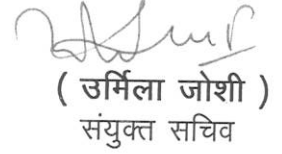 ( उर्मिला जोशी )
संयुक्त सचिव